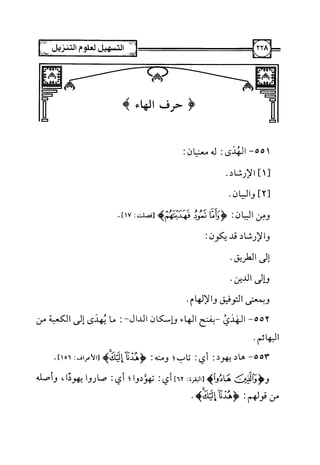 ٢٢٨
التسهيل لعلوم التنزيل
﴿ حرف الهاء ﴾
٥٥١- الهُدَى: له معنيان:
[١] الإرشاد.
[٢] والبيان.
ومِن البيان: ﴿وَأَمَّا ثَمُودُ فَهَدَيْنَٰهُمْ﴾ [فصلت: ١٧].
والإرشاد قد يكون:
إلى الطريق.
وإلى الدين.
وبمعنى التوفيق والإلهام.
٥٥٢- الهَدْيُ -بفتح الهاء وإسكان الدال-: ما يُهدَى إلى الكعبة من
البهائم.
٥٥٣- هاد يهود: أي: تاب؛ ومنه: ﴿هُدْنَآ إِلَيْكَ﴾ [الأعراف: ١٥٦].
و﴿وَالَّذِينَ هَادُوا﴾ [البقرة: ٦٢] أي: تهوَّدوا؛ أي: صاروا يهودًا، وأصله
من قولهم: ﴿هُدْنَآ إِلَيْكَ﴾.